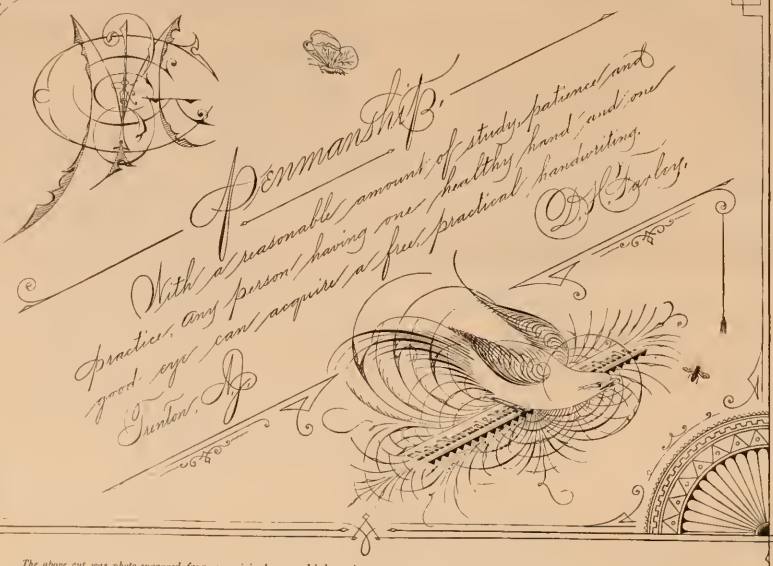 Penmanship.
With a reasonable amount of study, patience and
practice, any person having one healthy hand and one
good eye can acquire a free, practical handwriting.
D. H. Farley.
Trenton, N.J.
The above cut was photo-engraved from an original